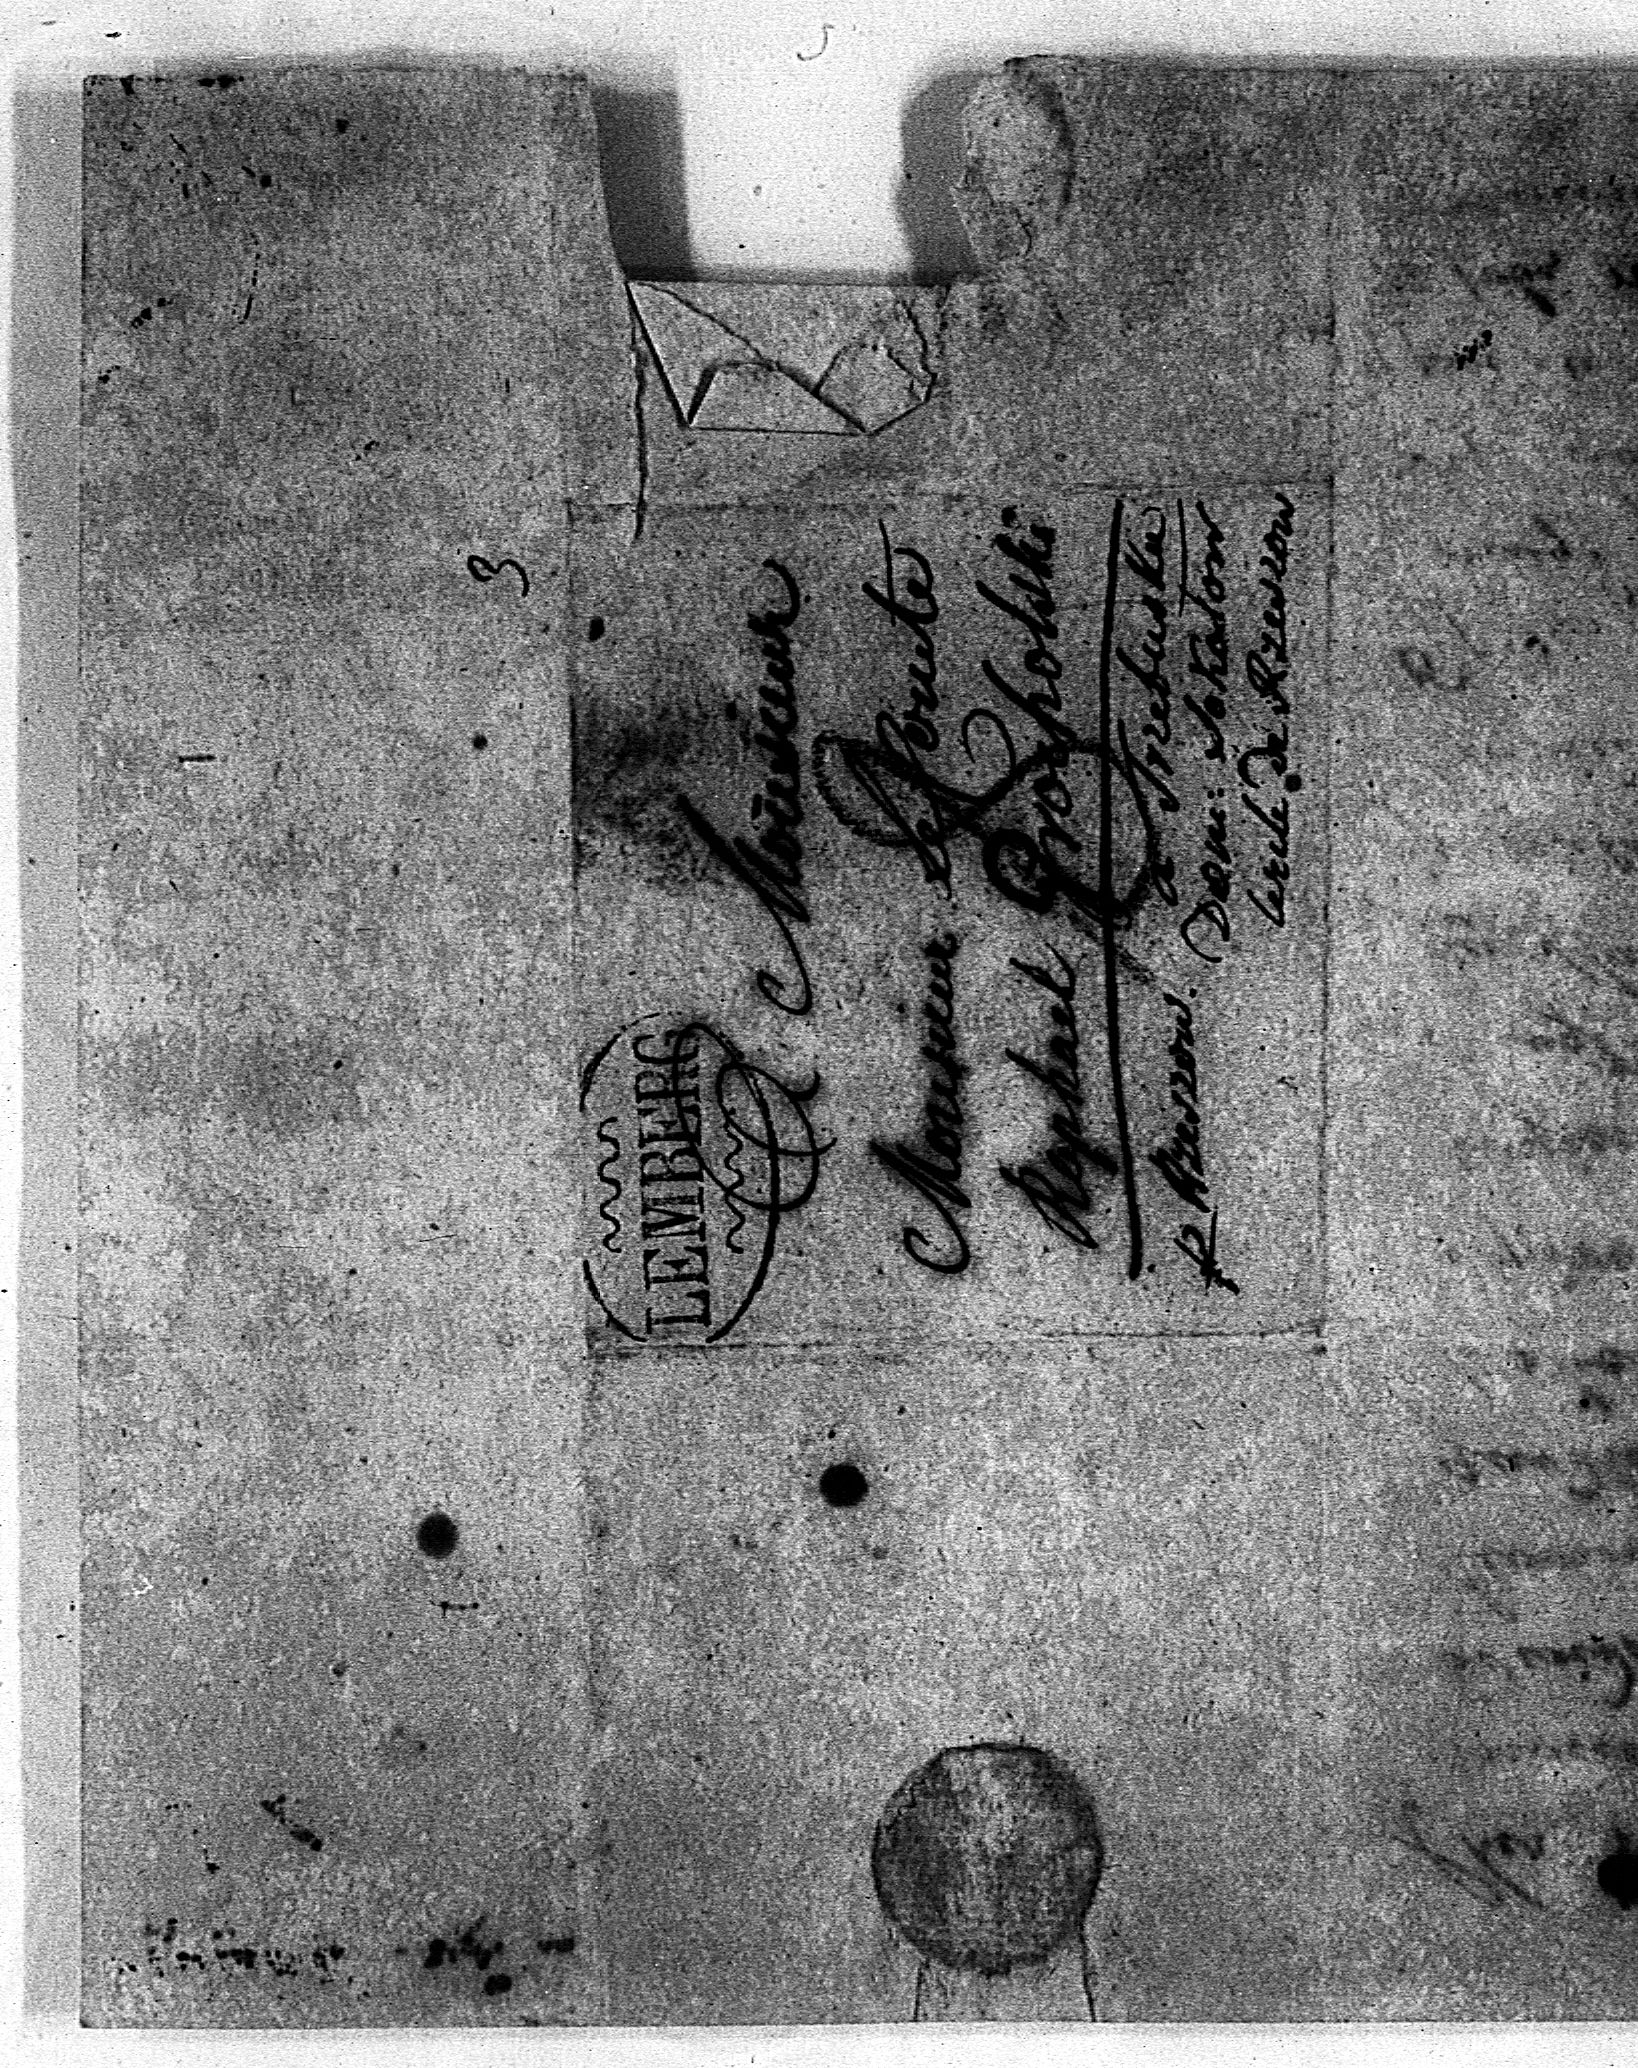 3
LEMBERG
A Monsieur
Monsieur le Comte
Raphael Grocholski
a Trzebuska
p Rzeszow. Dem: Sokolow
Cercle de Rzeszow